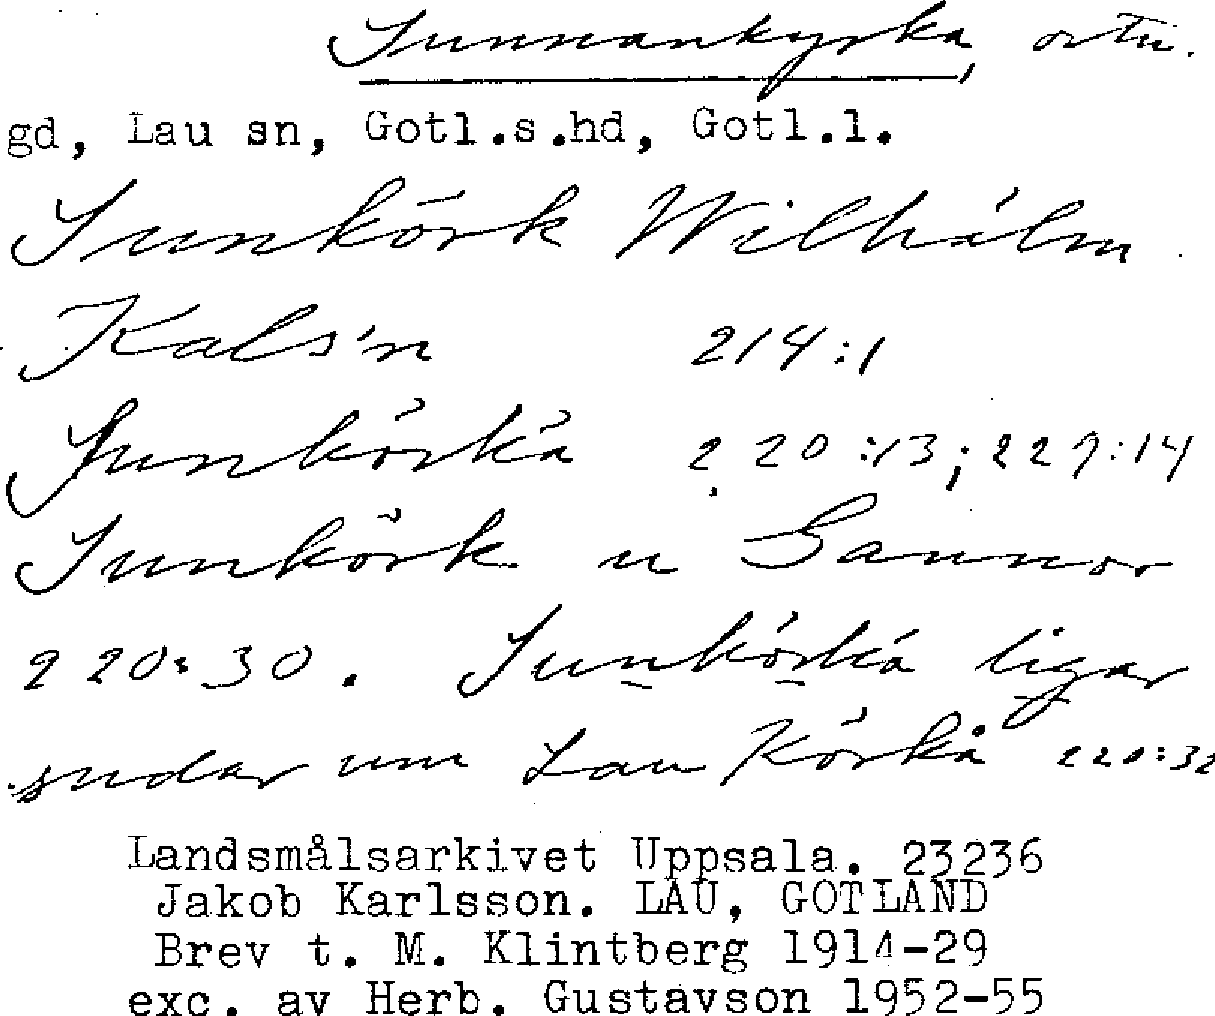 Sunnankyrka, ortn.
gd, Lau sn, Gotl.s.hd, Gotl.l.
Sunkörk Wilhälm
Kals'n 214:1
Sunkörkä 220:13; 227:14
Sunkörk u Bannor
220:30. Sunkörkä ligar
sudar um Lau Körkå 220:32
Landsmålsarkivet Uppsala. 23236
Jakob Karlsson. LAU, GOTLAND
Brev t. M. Klintberg 1914-29
exc. av Herb. Gustavson 1952-55